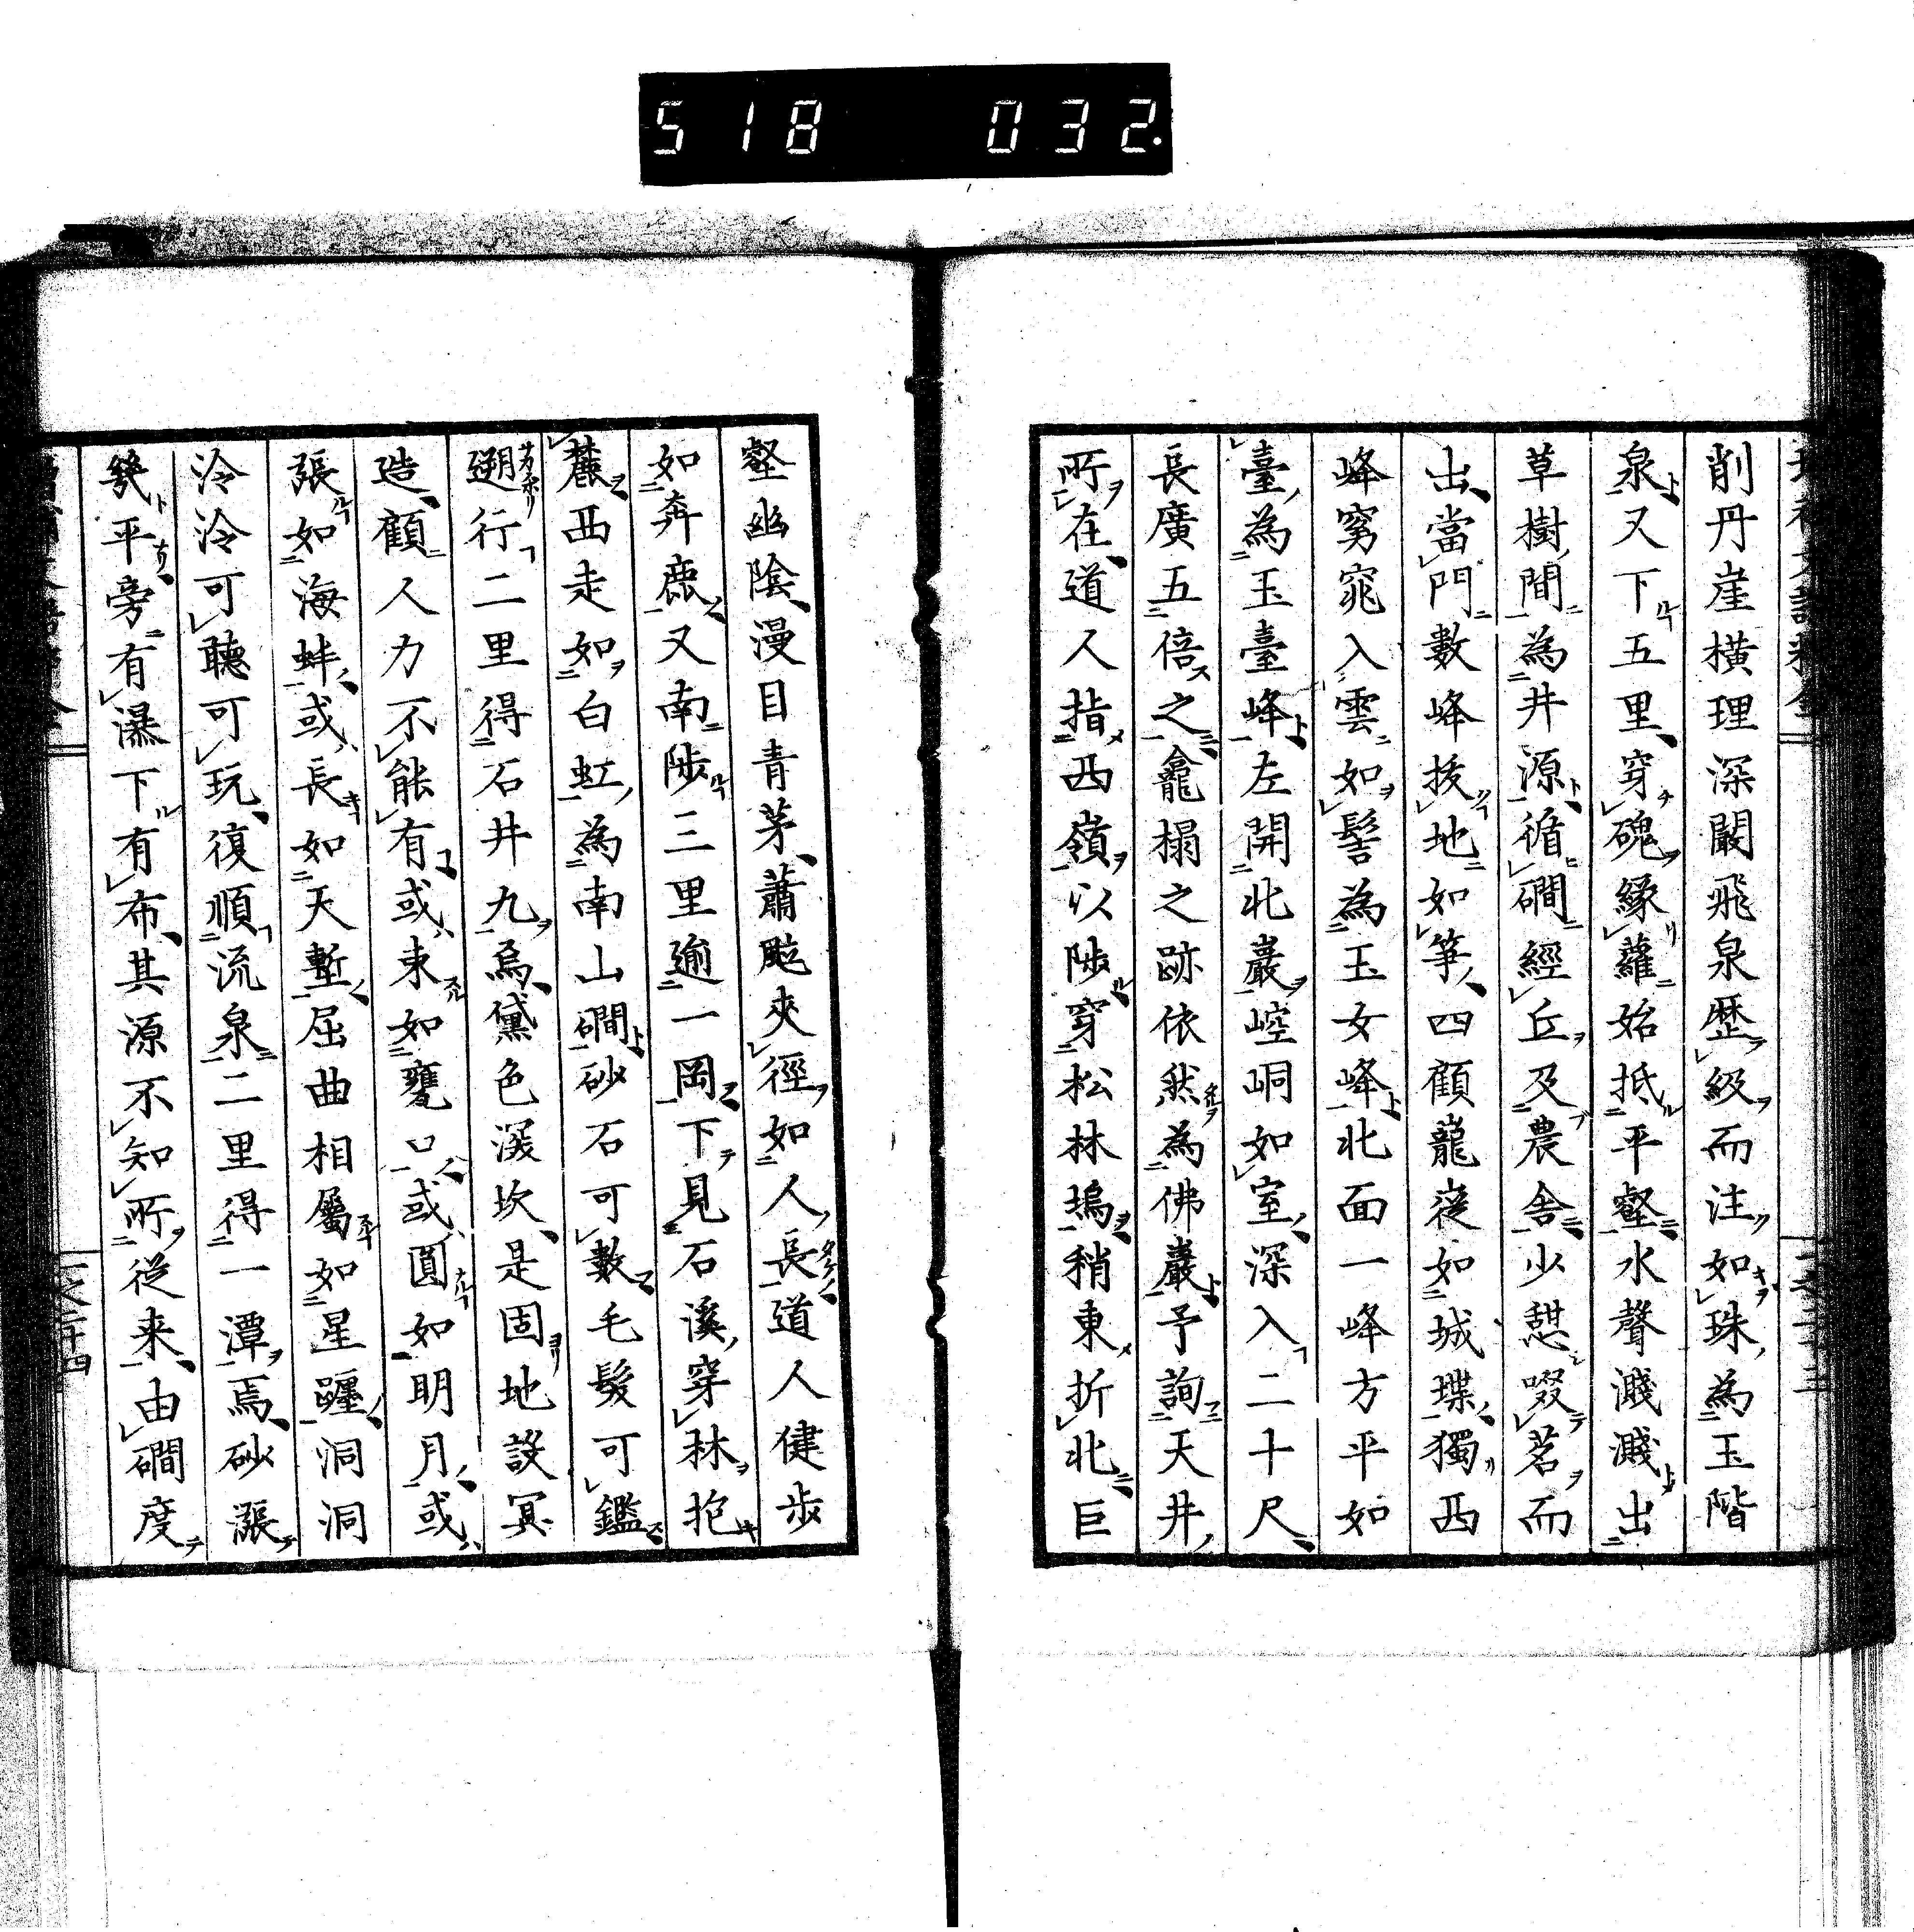 518 032.
削丹崖橫理深闞飛泉歴級而注如珠為玉階
泉又下五里穿磈縁蘿始抵平壑水聲濺濺出
草樹間為井源循磵經丘及農舎少憇啜茗而
出當門數峰拔地如筝四顧巃嵷如城堞獨西
峰窈窕入雲如髻為玉女峰北面一峰方平如
臺為玉臺峰左開北巖崆峒如室深入二十尺
長廣五倍之龕榻之跡依然為佛巖予詢天井
所在道人指西嶺以陟穿松林塢稍東折北巨
壑幽陰漫目青茅蕭颼夾徑如人長道人健歩
如奔鹿又南陟三里逾一岡下見石溪穿林抱
麓西走如白虹為南山磵砂石可數毛髮可鑑
遡行二里得石井九焉黛色深坎是固地設冥
造顧人力不能有或東如甕口或圓如明月或
張如海蚌或長如天塹屈曲相屬如星躔洞洞
泠泠可聽可玩復順流泉二里得一潭焉砂漲
幾平旁有瀑下有布其源不知所從来由磵度